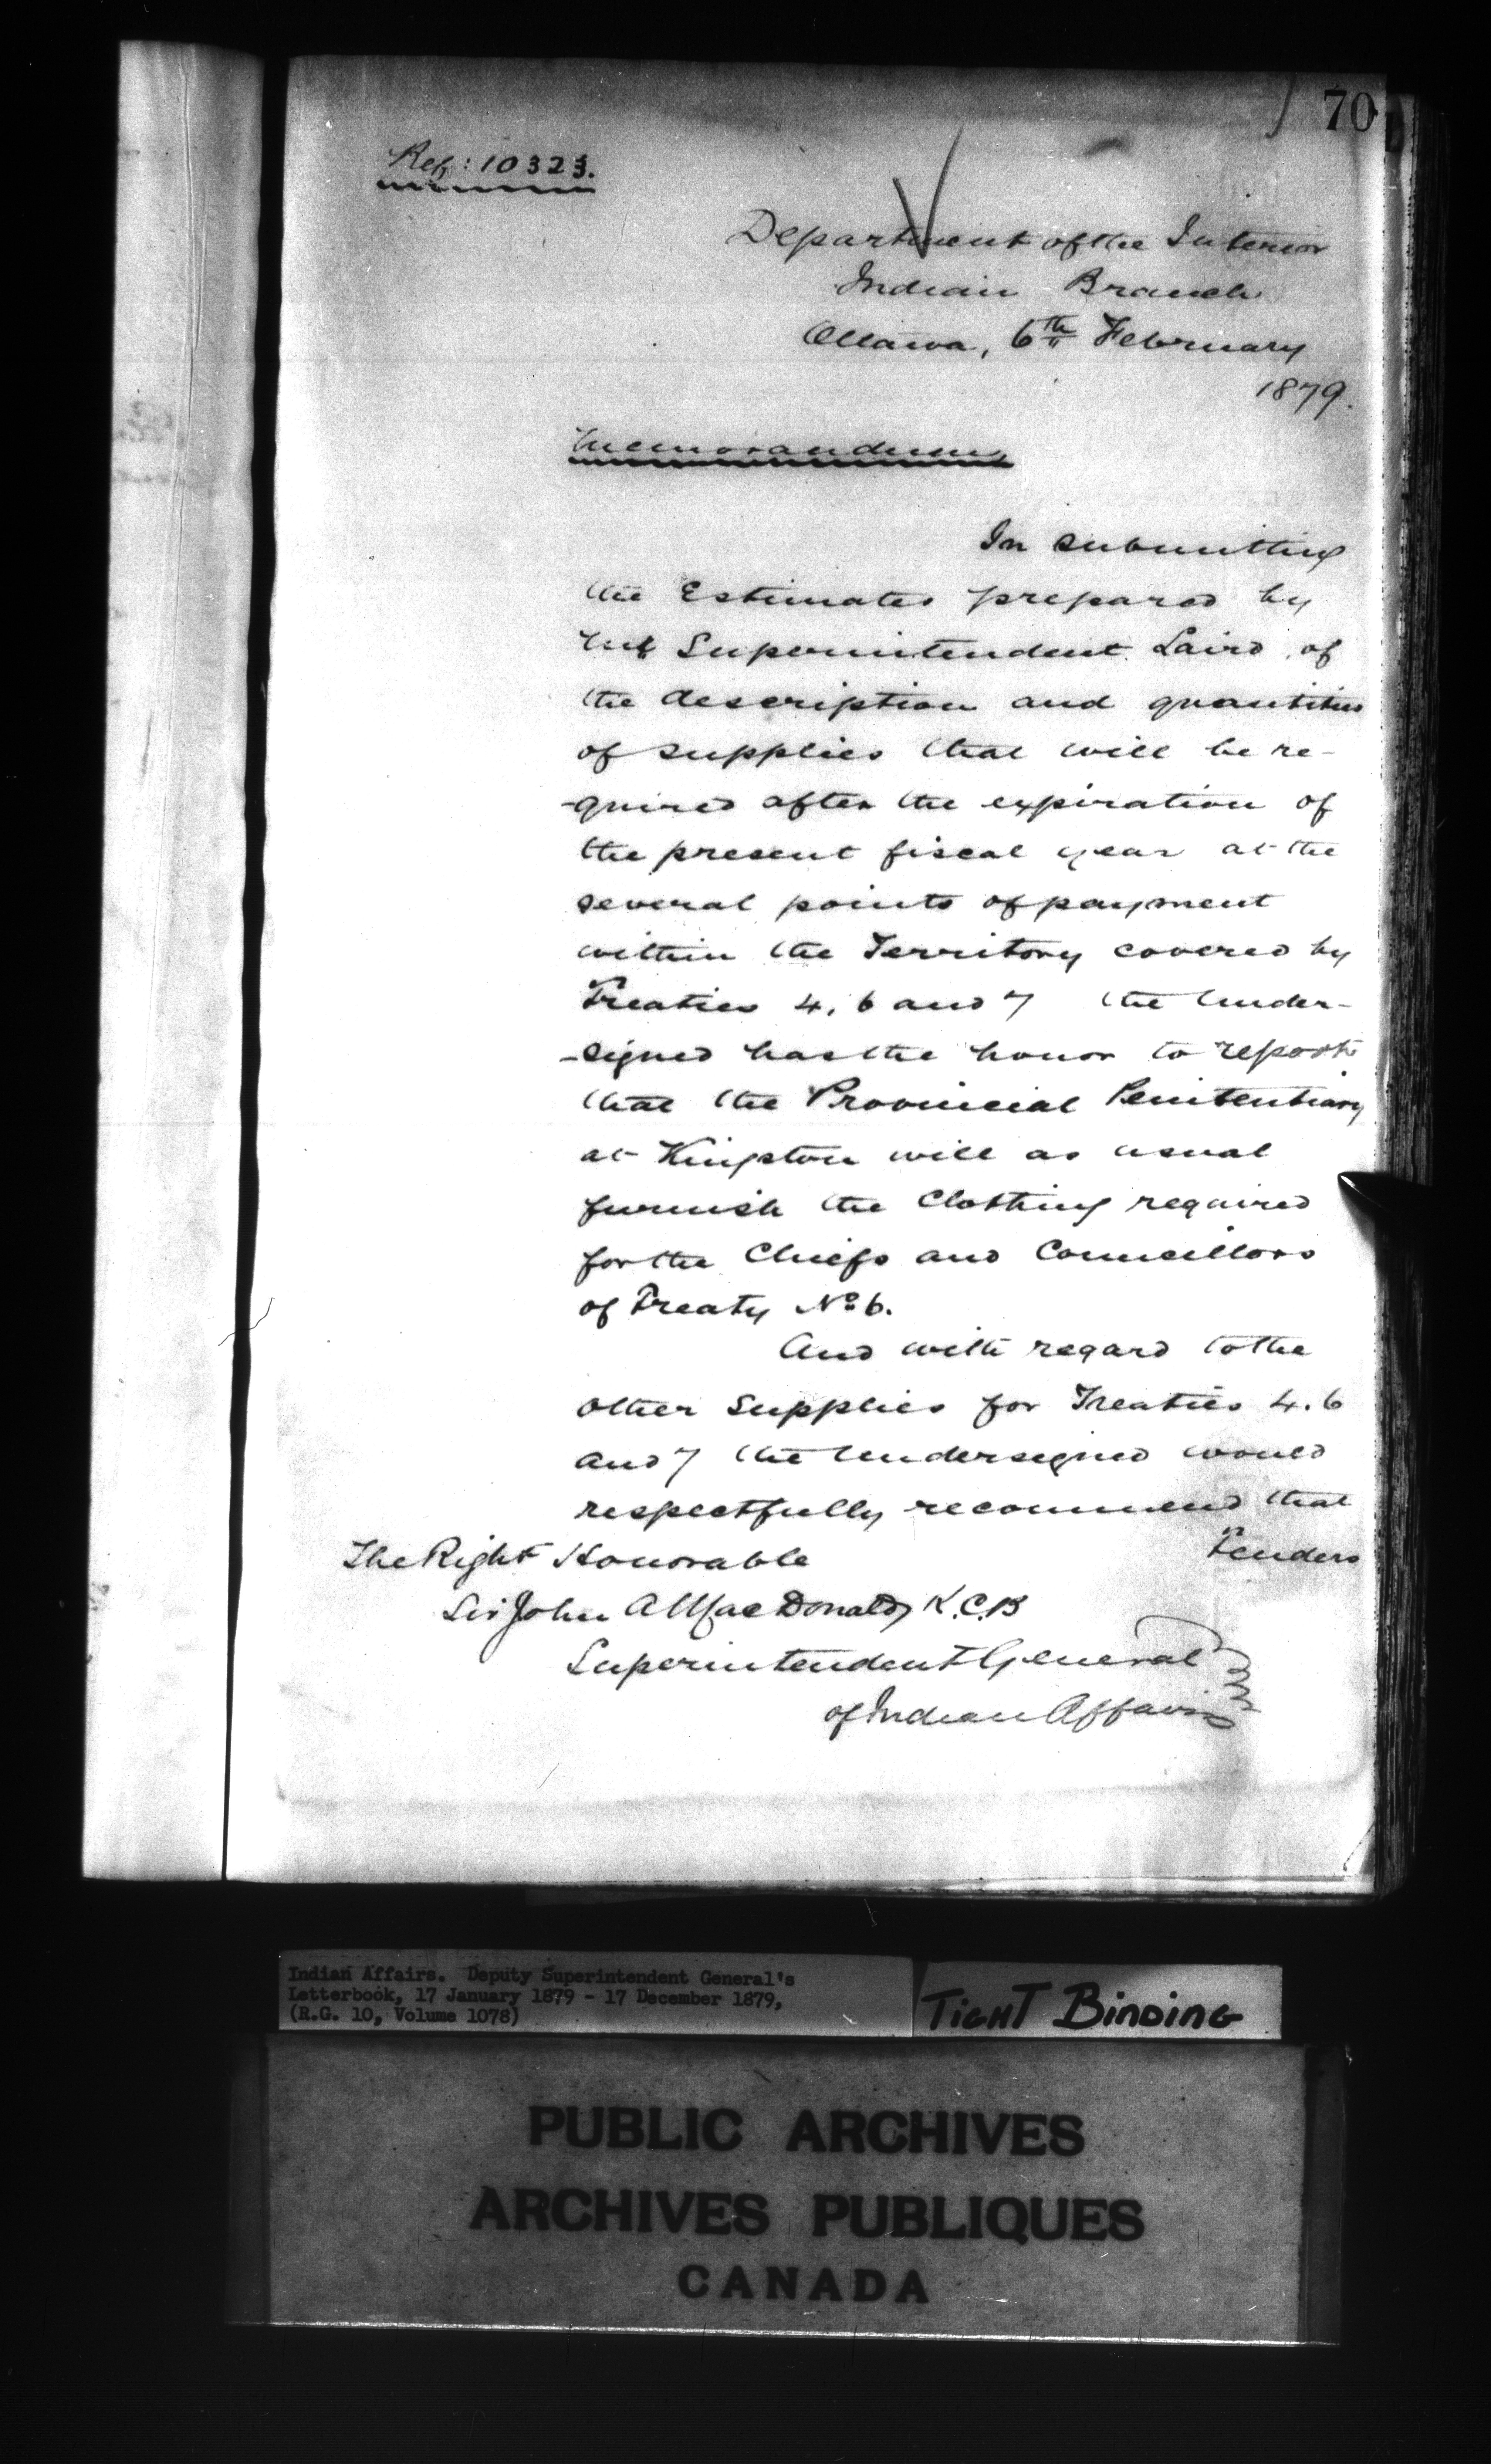 70
Ref: 10323.
Department of the Interior
Indian Branch
Ottawa, 6th February
1879.
Memorandum
In submitting
the Estimates prepared by
Superintendent Laird, of
the description and quantities
of supplies that will be re-
-quired after the expiration of
the present fiscal year at the
several points of payment
within the Territory covered by
Treaties 4, 6 and 7 the Under-
-signed has the honor to report
that the Provincial Penitentiary
at Kingston will as usual
furnish the Clothing required
for the Chiefs and Councillors
of Treaty No 6.
And with regard to the
other Supplies for Treaties 4. 6
and 7 the Undersigned would
respectfully recommend that
Tenders
The Right Honorable
Sir John A MacDonald, K.C.B
Superintendent General
of Indian Affairs
Indian Affairs. Deputy Superintendent General's
Letterbook, 17 January 1879 - 17 December 1879,
(R.G. 10, Volume 1078)
TIGHT BINDING
PUBLIC ARCHIVES
ARCHIVES PUBLIQUES
CANADA